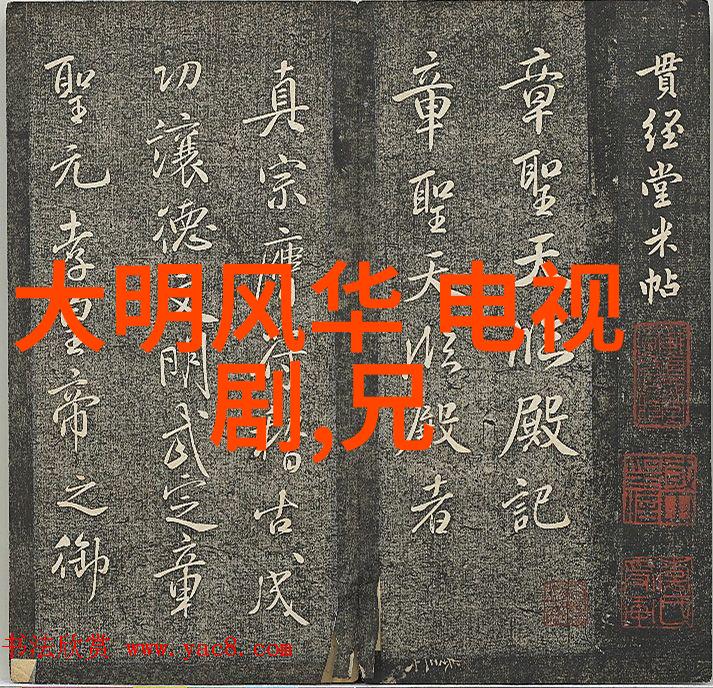 貫經堂米帖
章聖天臨殿記
章聖天臨殿者
真宗膺符稽古成
功讓德文明武定章
聖元孝皇帝之御
大明风华 电视
剧,兄
书法欣赏 www.yac8.com